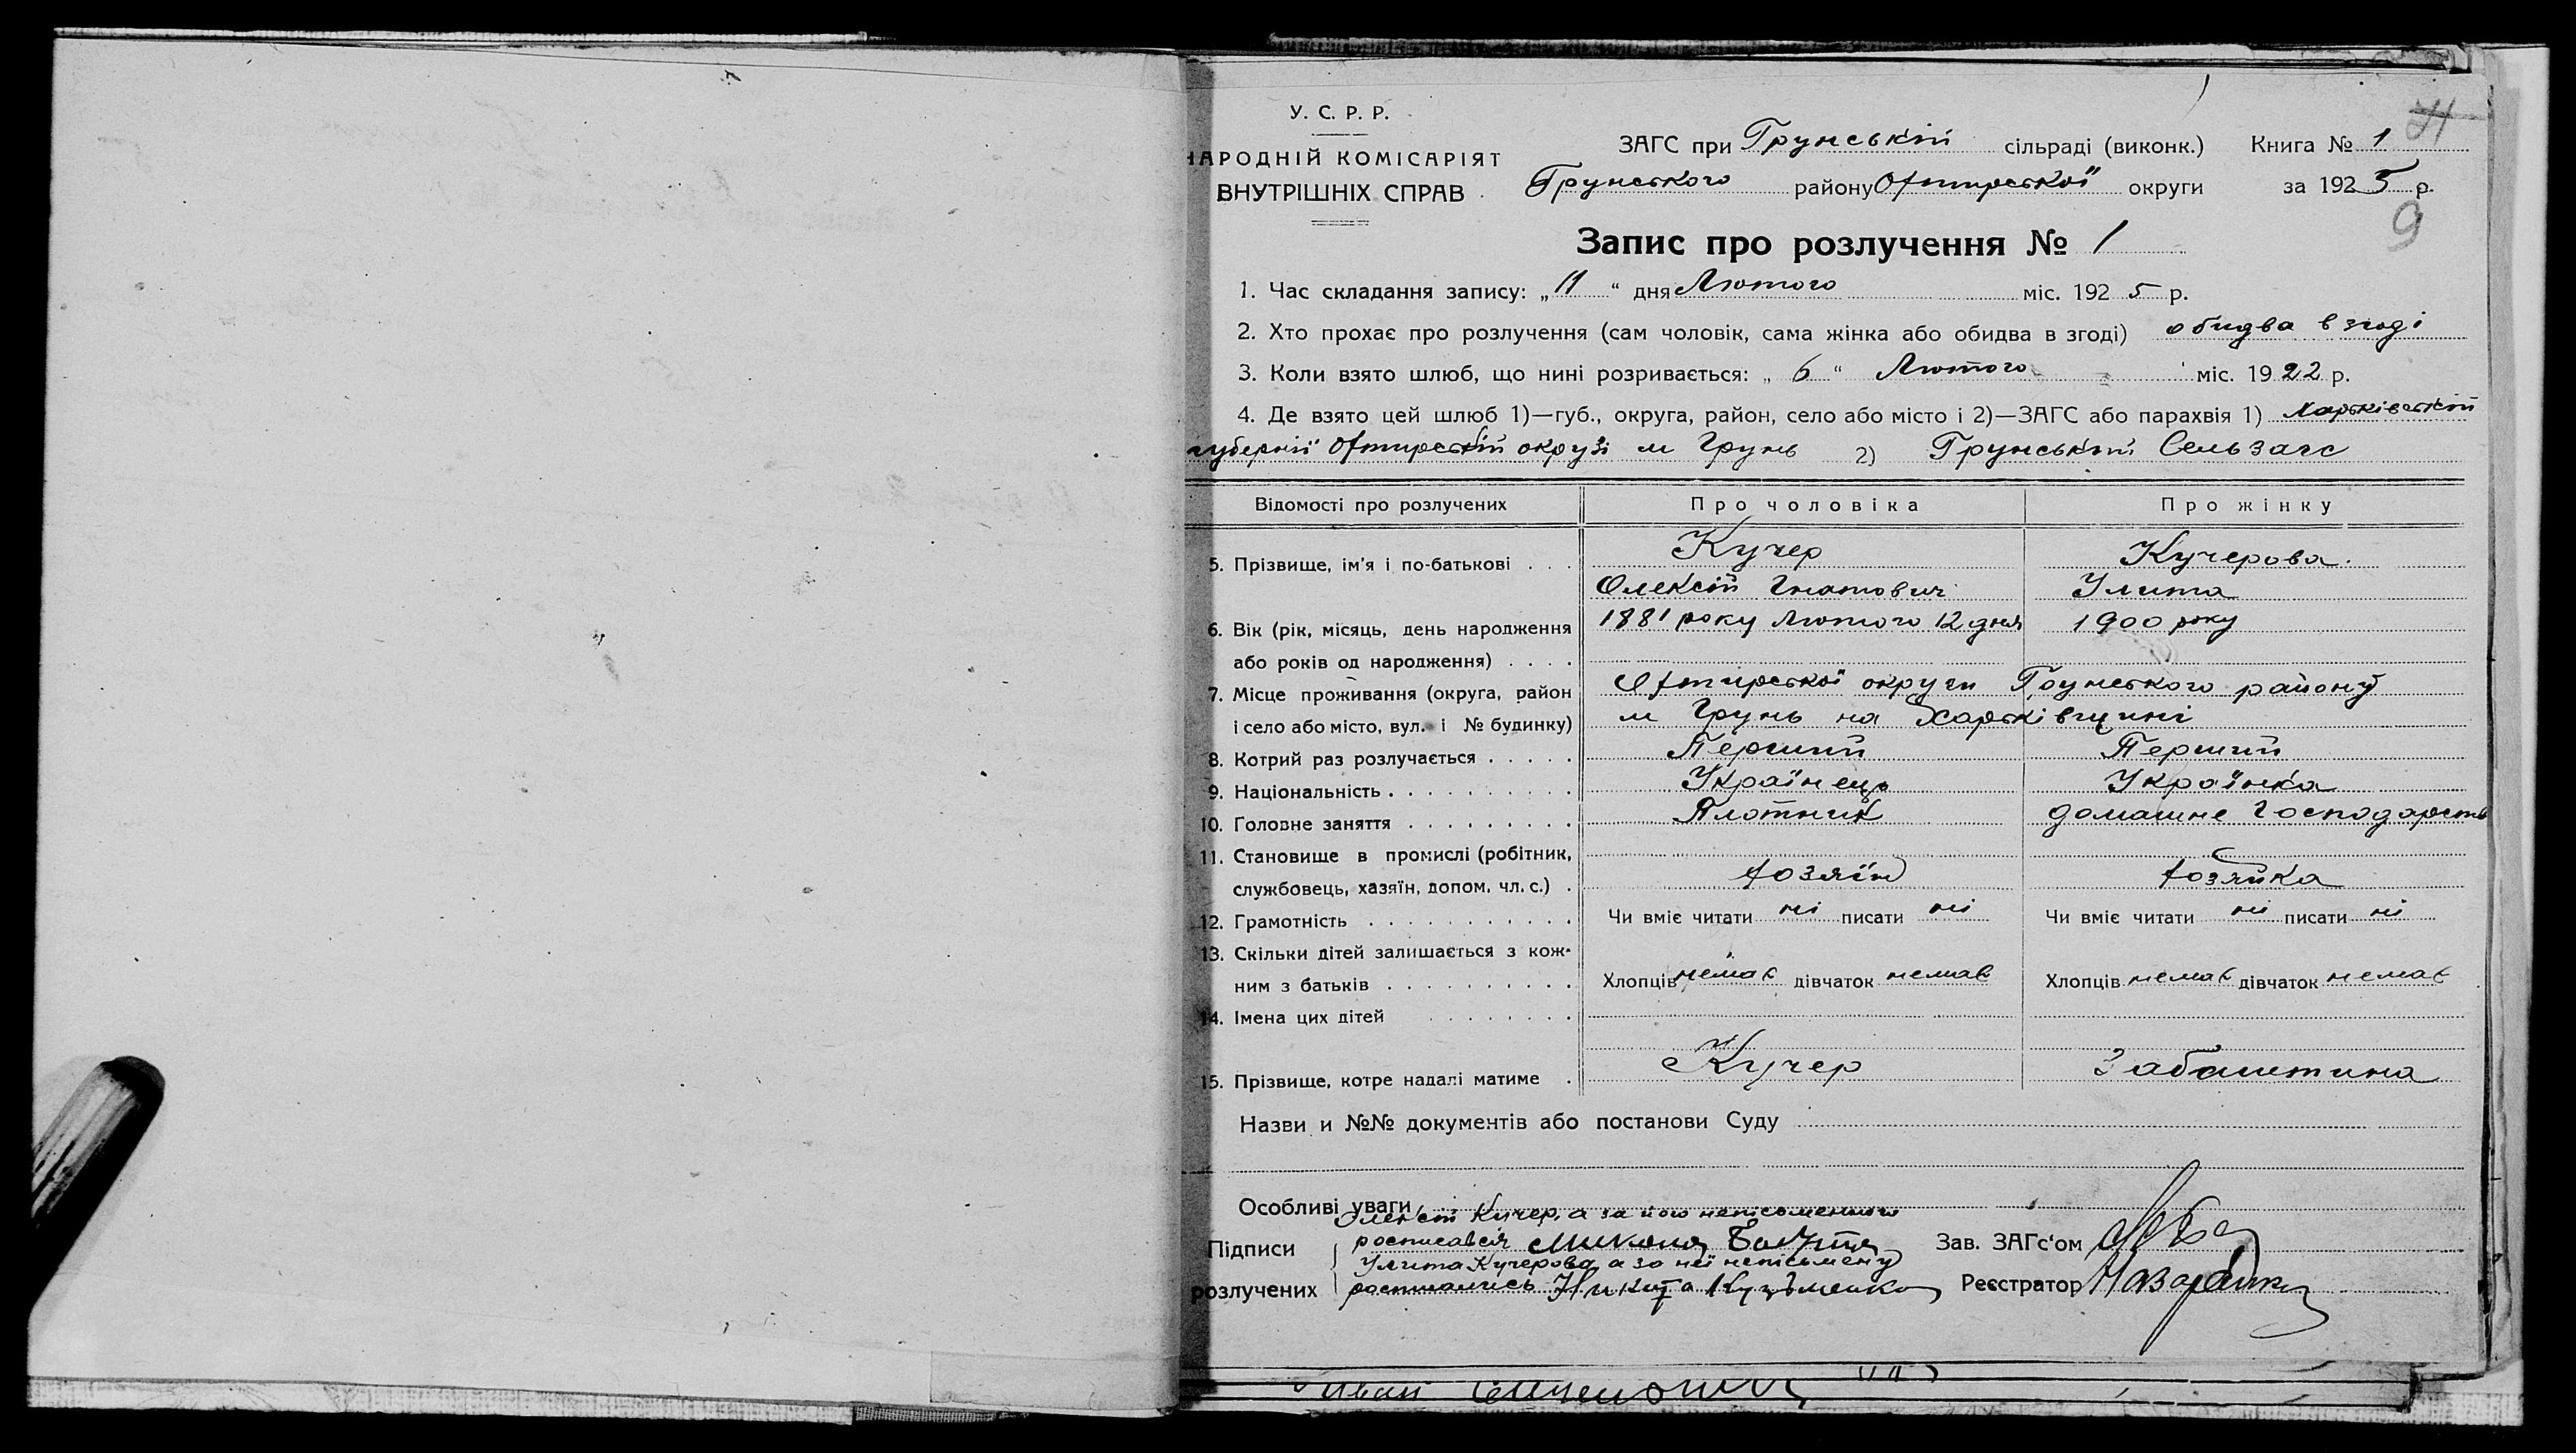 У. С. Р. Р.
НАРОДНІЙ КОМІСАРІЯТ
ВНУТРІШНІХ СПРАВ
ЗАГС при Грунській сільраді (виконк.) Книга № 1
Грунського району Охтирської округи за 1925 р.
9
Запис про розлучення № 1
1. Час складання запису: „11“ дня Лютого міс. 1925 р.
2. Хто прохає про розлучення (сам чоловік, сама жінка або обидва в згоді) обидва в згоді
3. Коли взято шлюб, що нині розривається: „6“ Лютого міс. 1922 р.
4. Де взято цей шлюб 1)—губ., округа, район, село або місто і 2)—ЗАГС або парахвія 1) Харьківській
губернії Охтирській окрузі м Грунь 2) Грунський Сельзагс
Відомості про розлучених Про чоловіка Про жінку
5. Прізвище, ім'я і по-батькові Кучер Кучерова.
Олексій Гнатович Улита
6. Вік (рік, місяць, день народження 1881 року Лютого 12 дня 1900 року
або років од народження)
7. Місце проживання (округа, район Охтирської округи Грунського району
і село або місто, вул. і № будинку) м Грунь на Харьківщині
8. Котрий раз розлучається Перший Перший
9. Національність Українець Українка
10. Головне заняття Плотник домашне Господарств
11. Становище в промислі (робітник,
службовець, хазяїн, допом. чл. с.) хозяїн хозяйка
12. Грамотність Чи вміє читати ні писати ні Чи вміє читати ні писати ні
13. Скільки дітей залишається з кож-
ним з батьків Хлопців немає дівчаток немає Хлопців немає дівчаток немає
14. Імена цих дітей
15. Прізвище, котре надалі матиме Кучер Забаштина
Назви и №№ документів або постанови Суду
Особливі уваги
Олексій Кучер, а за його неписьменного
Підписи росписався Микола Зав. ЗАГс'ом
Улита Кучерова а за неї неписьмену
розлучених росписались Никита Кузьменко Реєстратор